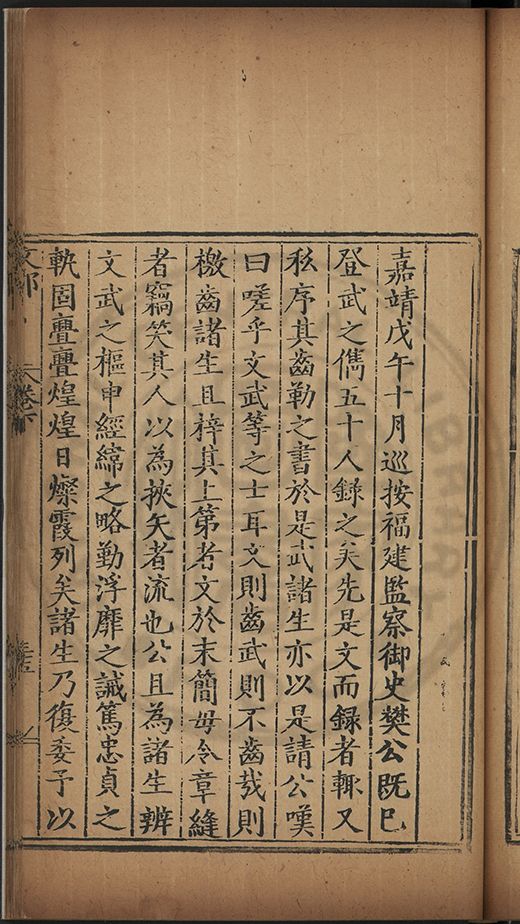 嘉靖戊午十月巡按福建監察御史樊公既已
登武之儁五十人錄之矣先是文而録者輙又
私序其齒勒之書於是武諸生亦以是請公嘆
曰嗟乎文武等之士耳文則齒武則不齒㢤則
檄齒諸生且梓其上第者文於末簡毋令章縫
者竊笑其人以為挾矢者流也公且為諸生辨
文武之樞申經緯之略勤浮靡之誡篤忠貞之
軌固亹亹煌煌日燦霞列矣諸生乃復委予以
卷下